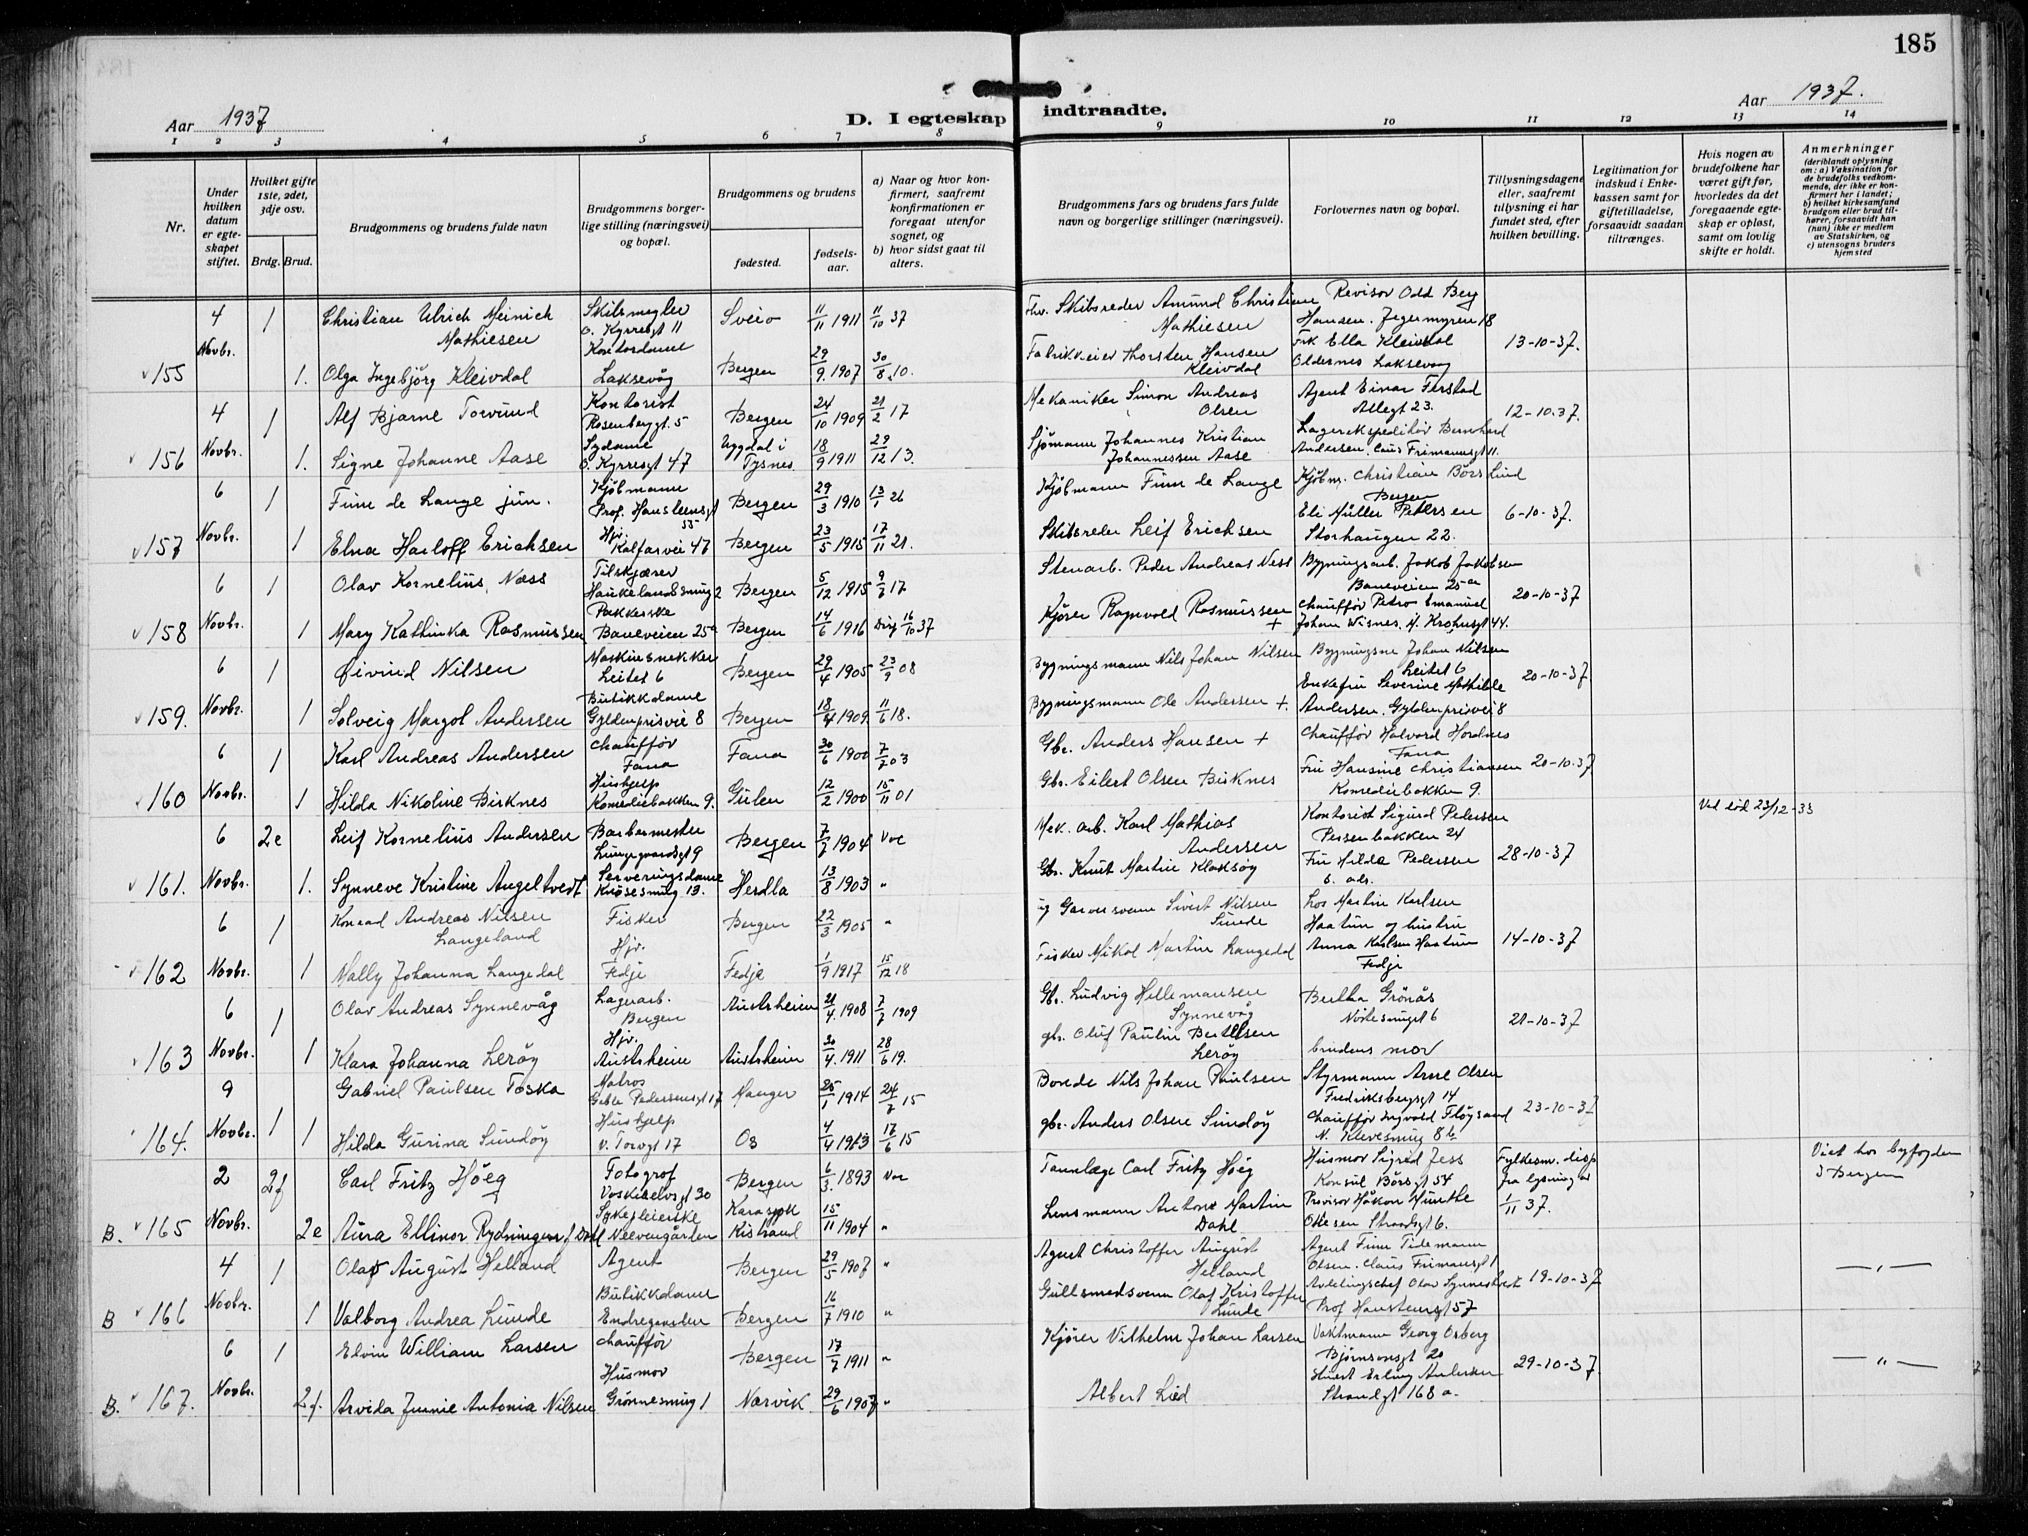 185
Aar 1937
D. I egteskap indtraadte.
Aar 1937.
1 2 3 4 5 6 7 8 9 10 11 12 13 14
Nr.
Under hvilken datum er egteskapet stiftet.
Hvilket gifte 1ste, 2det, 3dje osv.
Brdg. Brud.
Brudgommens og brudens fulde navn
Brudgommens borgerlige stilling (næringsvei) og bopæl.
Brudgommens og brudens
fødested.
fødselsaar.
a) Naar og hvor konfirmert, saafremt konfirmationen er foregaat utenfor sognet, og
b) hvor sidst gaat til alters.
Brudgommens fars og brudens fars fulde navn og borgerlige stillinger (næringsvei).
Forlovernes navn og bopæl.
Tillysningsdagene eller, saafremt tillysning ei har fundet sted, efter hvilken bevilling.
Legitimation for indskud i Enkekassen samt for giftetilladelse, forsaavidt saadan tiltrænges.
Hvis nogen av brudefolkene har været gift før, hvorledes da det foregaaende egteskap er opløst, samt om lovlig skifte er holdt.
Anmerkninger
(deriblandt oplysning om: a) Vaksination for de brudefolks vedkommende, der ikke er konfirmert her i landet; b) hvilket kirkesamfund brudgom eller brud tilhører, forsaavidt han (hun) ikke er medlem av Statskirken, og c) utensogns bruders hjemsted
4 1 Christian Ulrich Meinich Mathiesen Skibsmegler O. Kyrresgt 11 Sveio 11/11 1911 11/10 37 Skibsreder Amund Christian Mathiesen Revisor Odd Berg Hansen. Jegermyren 18
155 Novbr. 1. Olga Ingebjörg Kleivdal Kontordame Laksevåg Bergen 29/9 1907 30/8 10. Fabrikkeier Thorsten Hansen Kleivdal Frk Ella Kleivdal Oldernes Laksevåg 13-10-37.
4 1 Alf Bjarne Torvund Kontorist Rosenbergt. 5 Bergen 24/10 1909 21/2 17 Mekaniker Simon Andreas Olsen Agent Einar Ferstad Allegt 23. 12-10-37.
156 Novbr. 1. Signe Johanne Aase Sydame O. Kyrresgt 47 Uggdal i Tysnes 18/9 1911 29/12 13. Sjømann Johannes Kristian Johannessen Aase Lagerekspeditør Bernhard Andersen. Claus Frimannsgt 11.
6 1 Finn de Lange jun. Kjøbmann Prof. Hansteensgt 55 Bergen 29/3 1910 13/1 26 Kjøbmann Finn de Lange Kjøbm. Christian Børs Lind Bergen 6-10-37.
157 Novbr. 1 Elna Harloff Erichsen Hjv. Kalfarvei 47 Bergen 23/5 1915 17/11 21. Skibsreder Leif Erichsen Eli Müller Petersen Storhaugen 22.
6 1 Olav Kornelius Næss Tilskjærer Haukelandsmug 2 Bergen 5/12 1915 9/7 17 Stenarb. Peder Andreas Ness Bygningsarb. Jakob Jakobsen Baneveien 25a 20-10-37
158 Novbr. 1 Mary Kathinka Rasmussen Pakkerske Baneveien 25a Bergen 14/6 1916 16/10 37 Kjører Ragnvald Rasmussen + Chauffør Petro Emanuel Johan Wisnes. M. Krohnsgt 44.
6 1 Øivind Nilsen Maskinsnekker Leitet 6 Bergen 29/4 1905 23/9 08 Bygningsmann Nils Johan Nilsen Bygningsm Johan Nilsen Leitet 6 20-10-37
159. Novbr. 1 Solveig Margot Andersen Butikkdame Gyldenprisvei 8 Bergen 18/4 1909. 11/6 18. Bygningsmann Ole Andersen +. Enkefru Severine Mathilde Andersen. Gyldenprisvei 8
6 1 Karl Andreas Andersen Chauffør Fana Fana 30/6 1900 7/7 03 Gbr. Anders Hansen + Chauffør Halvard Hordnes Fana 20-10-37
160 Novbr. 1 Hilda Nikoline Birknes Hushjelp Komediebakken 9. Gulen 12/2 1900 15/11 01 Gbr. Eilert Olsen Birknes Fru Hansine Christiansen Komediebakken 9.
6 2e Leif Kornelius Andersen Barbermester Lungegaardsgt 9 Bergen 7/7 1904 Vac Mek. arb. Karl Mathias Andersen Kontorist Sigurd Pedersen Persenbakken 24 28-10-37 Ved död 23/12-33
161. Novbr. 1. Synneve Kristine Angeltvedt Serveringsdame Krøsesmug 13. Herdla 13/8 1903 " Gbr. Knut Martin Klaksøy Fru Hilda Pedersen s. adr.
6 1 Konrad Andreas Nilsen Langeland Fisker Bergen 22/3 1905 " Garversvenn Sivert Nilsen Sunde Los Martin Karlsen Haatun og hustru 14-10-37
162 Novbr. 1 Nally Johanna Langedal Hjv. Fedje Fedje 1/9 1917 15/12 18 Fisker Mikal Martin Langedal Anna Karlsen Haatun Fedje
6 1 Olav Andreas Synnevåg Lagerarb. Bergen Austrheim 21/4. 1908 7/7 1909 Gbr. Ludvig Hellemansen Synnevåg Bertha Grönås Nöstesmuget 6 21-10-37
163 Novbr. 1 Klara Johanna Leröy Hjv. Austrheim Austrheim 30/4. 1911 28/6 19. gbr. Oluf Paulin Bertelsen Leröy brudens mor
9 1 Gabriel Paulsen Toska Matros Geble Pedersensgt 17 Manger 25/1 1914 24/7 15 Bonde Nils Johan Paulsen Styrmann Arne Olsen Fredriksbergsgt 14 23-10-37
164. Novbr. 1 Hilda Gurina Sundöy Hushjelp v. Torvgt 17 Os 4/4 1913 17/6 15 gbr. Anders Olsen Sundöy Chauffør Ingvald Fløysand N. Klevesmug 8b
2 2f Carl Fritz Höeg Fotograf Vaskerelvsgt 30 Bergen 6/3. 1893 Vac Tannlæge Carl Fritz Höeg Husmor Sigrid Jess Konsul Børsgt 54 Fylkesm. disp fra lysning av 1/11 37. Viet hos byfogden i Bergen
B. 165 Novbr. 2e Aura Ellinor Rydningen f Dahl Sykepleierske Neevengården Karasjok Kistrand 15/11 1904 " Lensmann Antone Martin Dahl Provisor Håkon Munthe Ottesen Strandgt 6.
4 1 Olaf August Helland Agent Bergen 29/5 1907 " Agent Christoffer August Helland Agent Finn Tidemann Olsen. Claus Frimansgt 1 19-10-37 — " —
B 166 Novbr. 1 Valborg Andrea Lunde Butikkdame Endregården Bergen 16/7 1910 " Gullsmedsvenn Olaf Kristoffer Lunde Avdelingschef Olav Synnestvedt Prof Hansteensgt 57
6 1 Elvin William Larsen Chauffør Bergen 17/7 1911 " Kjører Vilhelm Johan Larsen Vaktmann Georg Osberg Bjørnsonsgt 20 29-10-37. — " —
B. 167. Novbr. 2f. Arvida Jennie Antonia Nilsen Husmor Grønnesmug 1 Narvik 29/6 1907 " Albert Lied Erling Andersen Strandgt 168 a.